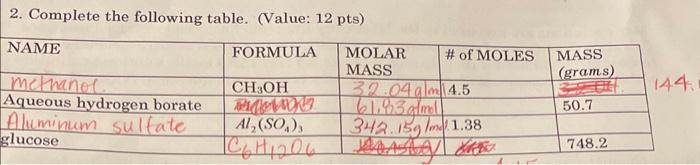 2. Complete the following table. (Value: 12 pts)
NAME FORMULA MOLAR MASS # of MOLES MASS (grams)
methanol CH₃OH 32.04g/mol 4.5 144.
Aqueous hydrogen borate 61.83g/mol 50.7
Aluminum sulfate Al₂(SO₄)₃ 342.15g/mol 1.38
glucose C₆H₁₂O₆ 748.2